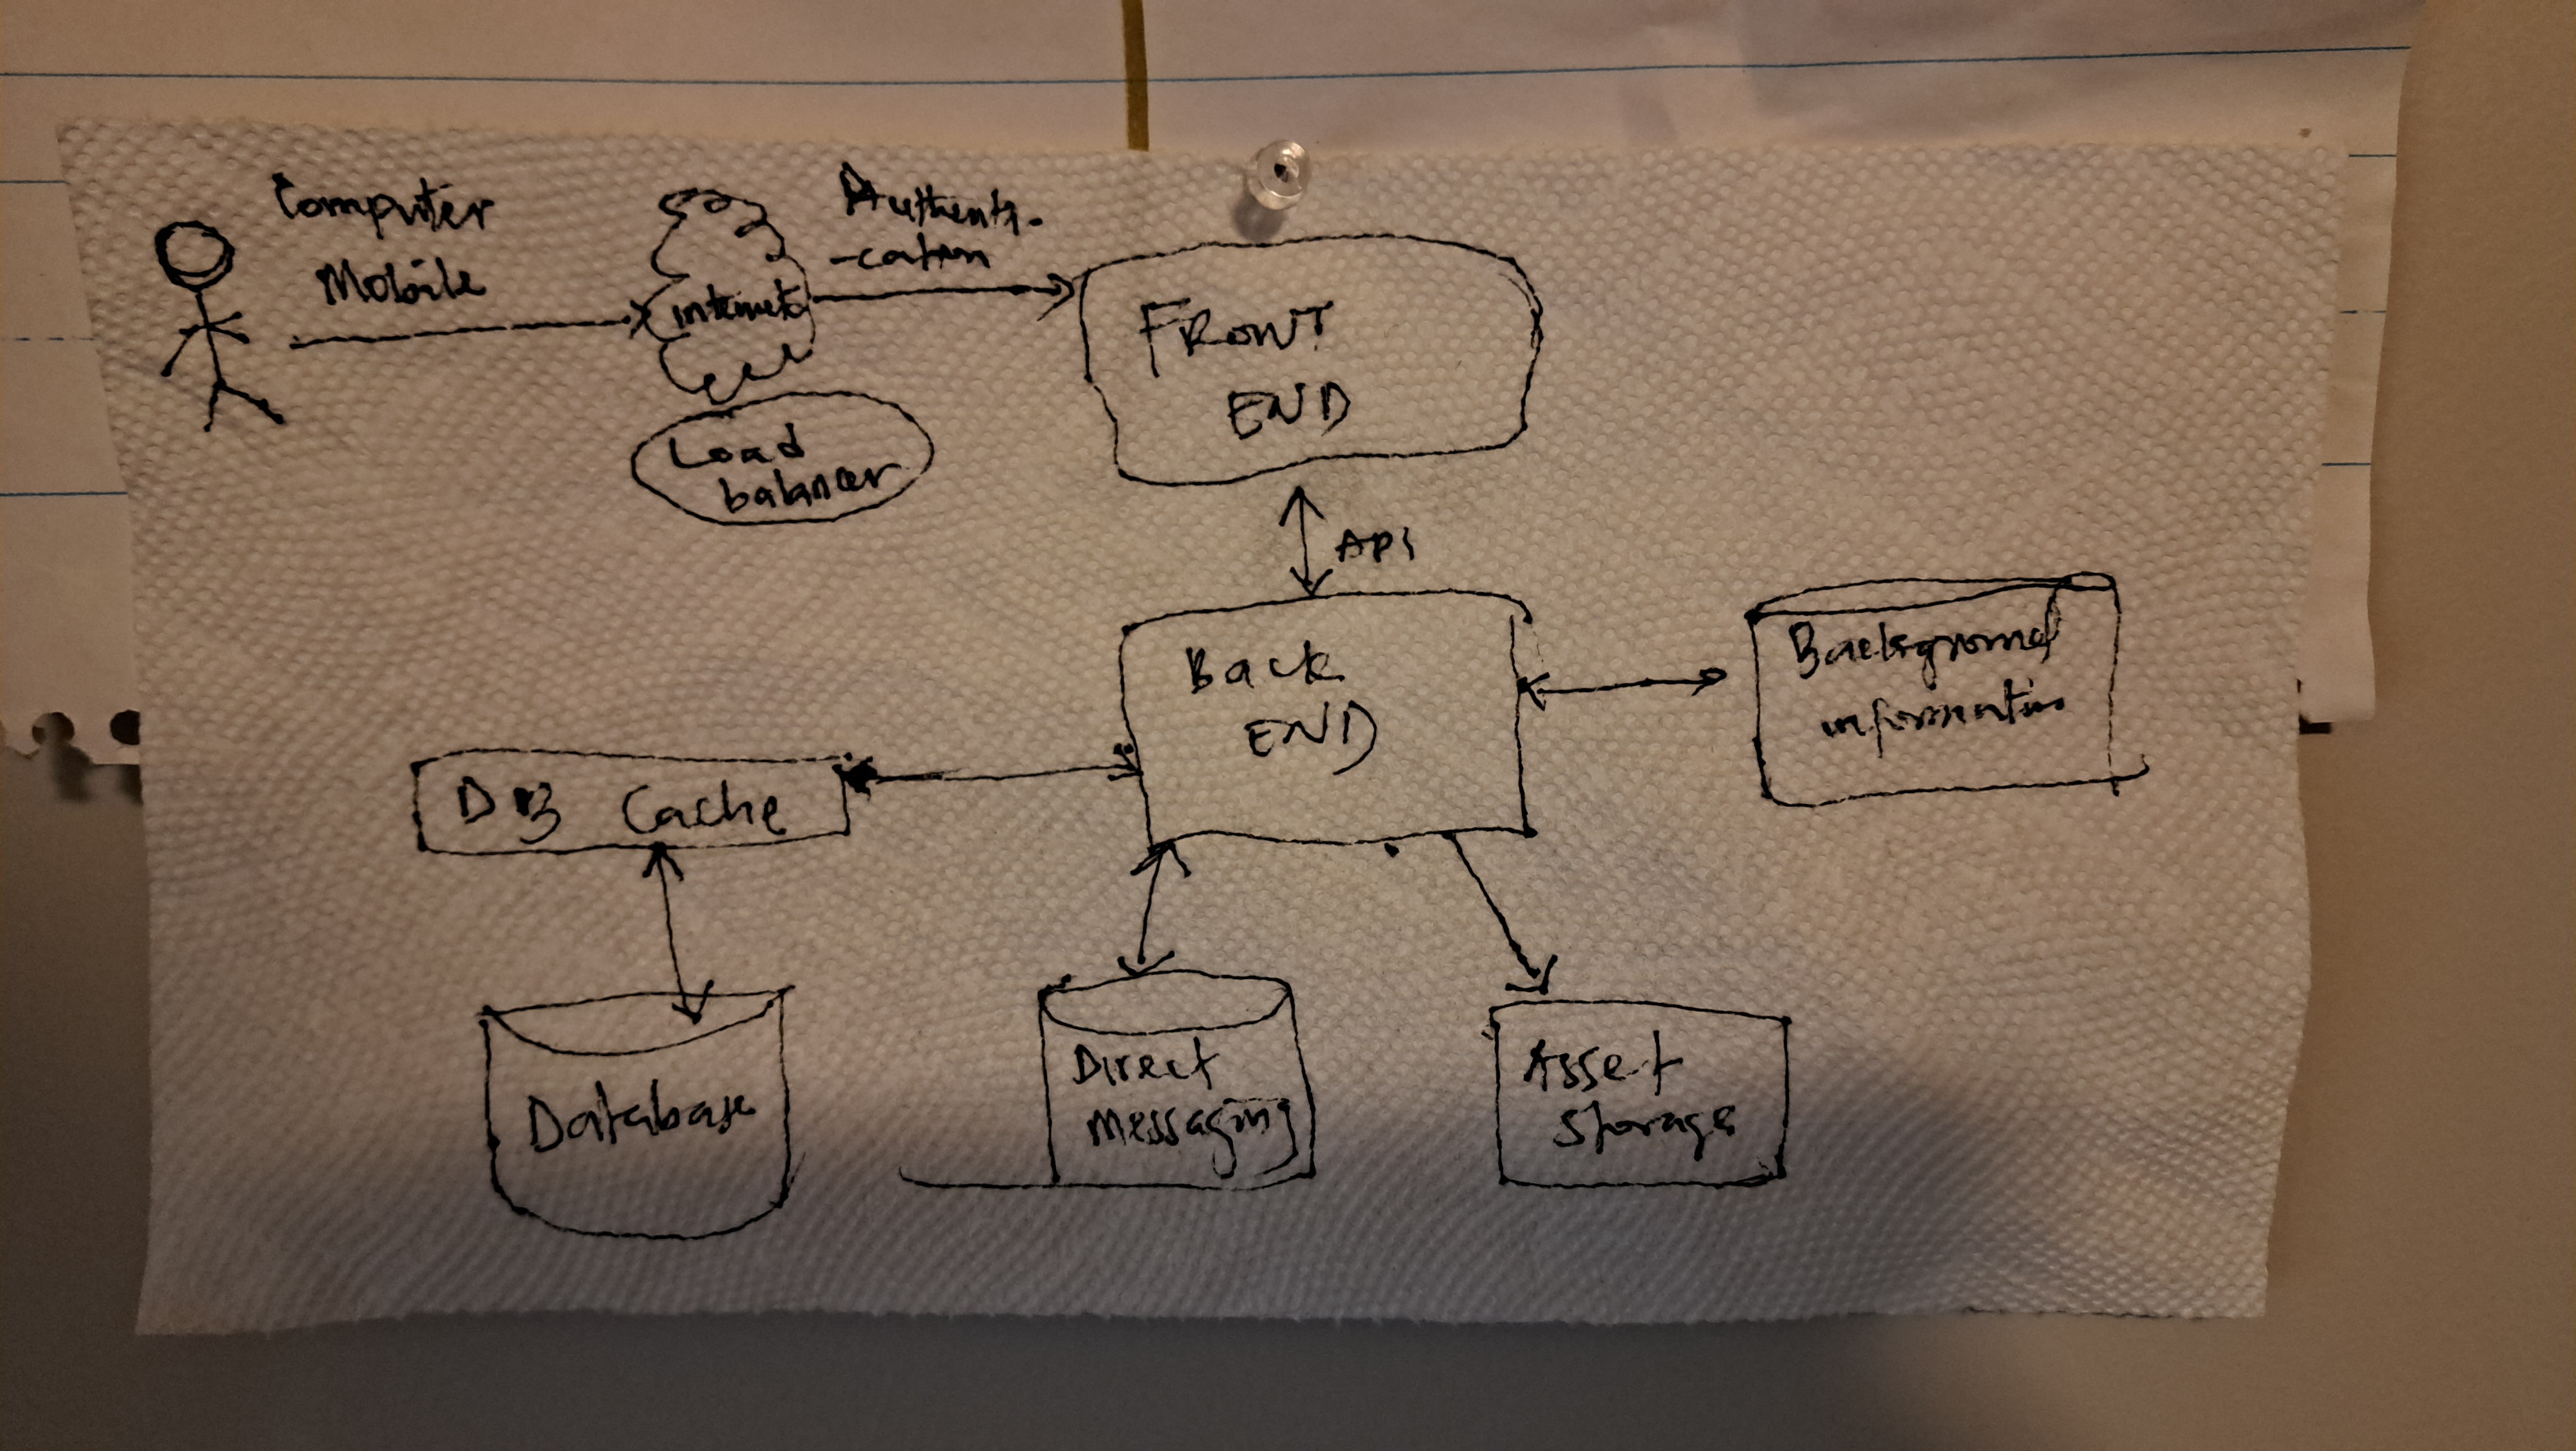 Computer
Mobile
internet
Authenti-
-cation
Load
balancer
FRONT
END
API
Back
END
Background
information
DB Cache
Database
Direct
messaging
Asset
storage